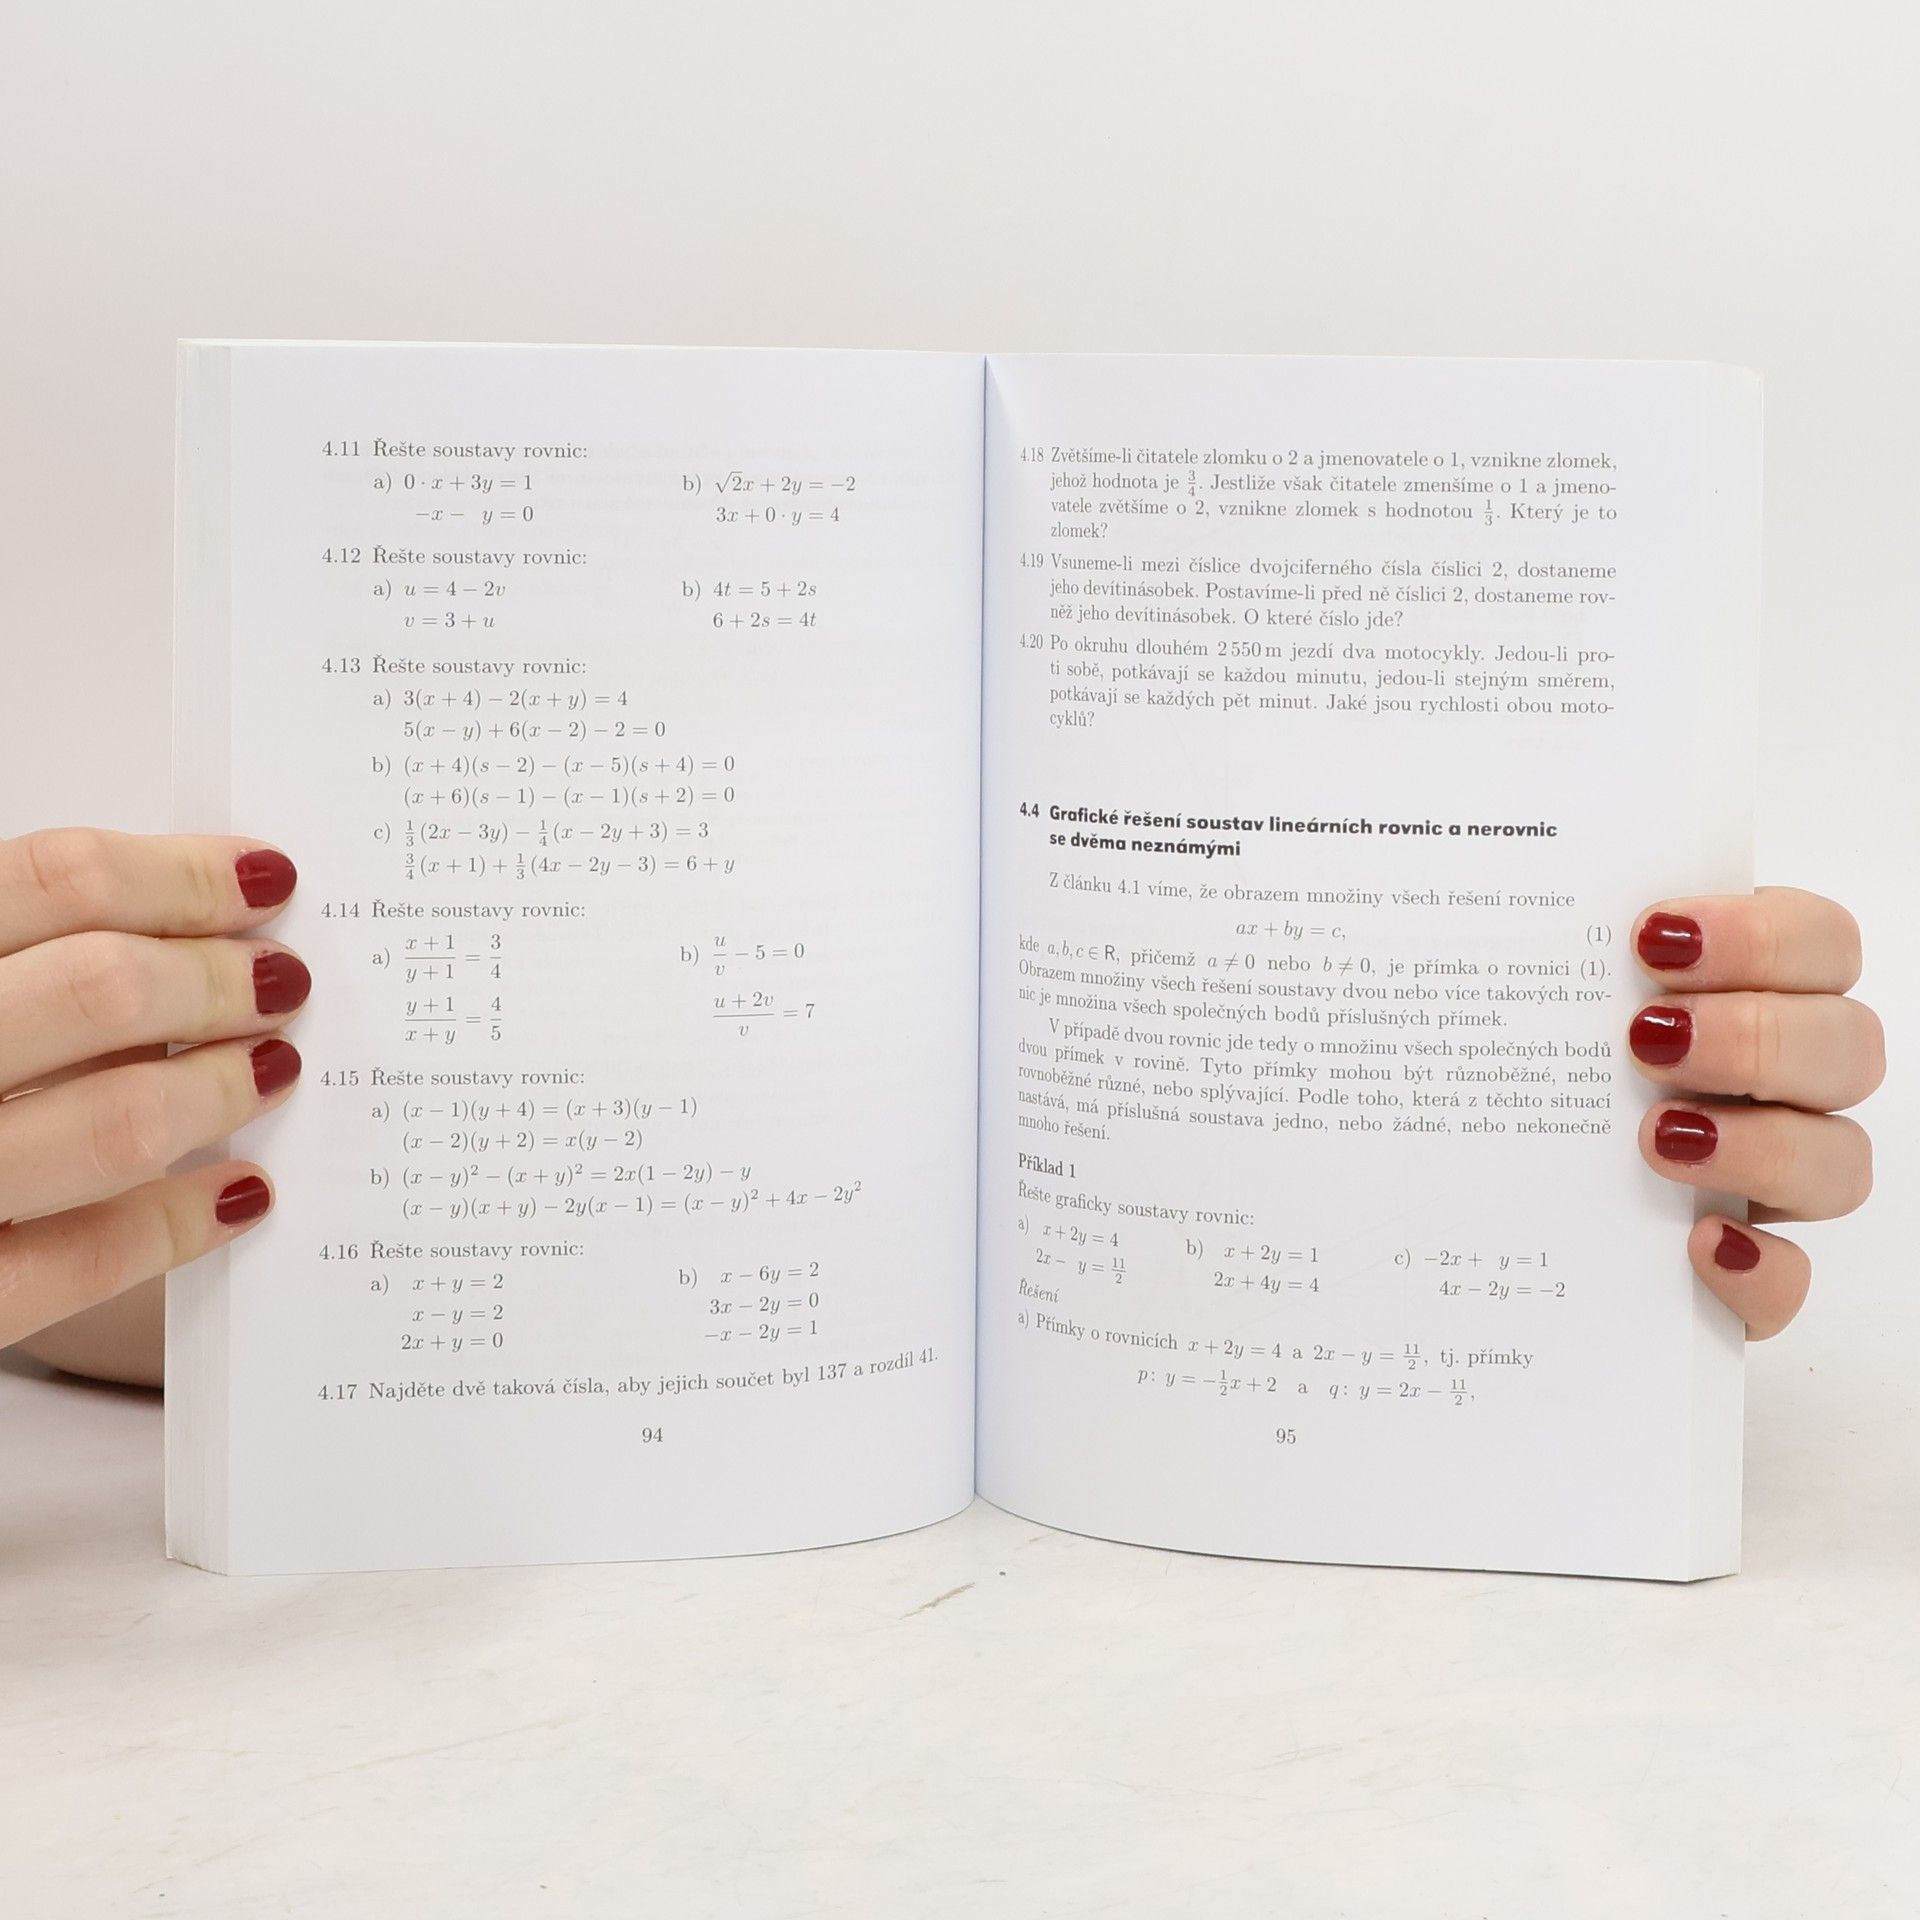 4.11 Řešte soustavy rovnic:
a) 0 · x + 3y = 1 b) √2x + 2y = −2
−x − y = 0 3x + 0 · y = 4
4.12 Řešte soustavy rovnic:
a) u = 4 − 2v b) 4t = 5 + 2s
v = 3 + u 6 + 2s = 4t
4.13 Řešte soustavy rovnic:
a) 3(x + 4) − 2(x + y) = 4
5(x − y) + 6(x − 2) − 2 = 0
b) (x + 4)(s − 2) − (x − 5)(s + 4) = 0
(x + 6)(s − 1) − (x − 1)(s + 2) = 0
c) 1/3 (2x − 3y) − 1/4 (x − 2y + 3) = 3
3/4 (x + 1) + 1/3 (4x − 2y − 3) = 6 + y
4.14 Řešte soustavy rovnic:
a) (x + 1)/(y + 1) = 3/4 b) u/v − 5 = 0
(y + 1)/(x + y) = 4/5 (u + 2v)/v = 7
4.15 Řešte soustavy rovnic:
a) (x − 1)(y + 4) = (x + 3)(y − 1)
(x − 2)(y + 2) = x(y − 2)
b) (x − y)² − (x + y)² = 2x(1 − 2y) − y
(x − y)(x + y) − 2y(x − 1) = (x − y)² + 4x − 2y²
4.16 Řešte soustavy rovnic:
a) x + y = 2 b) x − 6y = 2
x − y = 2 3x − 2y = 0
2x + y = 0 −x − 2y = 1
4.17 Najděte dvě taková čísla, aby jejich součet byl 137 a rozdíl 41.
94
4.18 Zvětšíme-li čitatele zlomku o 2 a jmenovatele o 1, vznikne zlomek,
jehož hodnota je 3/4. Jestliže však čitatele zmenšíme o 1 a jmeno-
vatele zvětšíme o 2, vznikne zlomek s hodnotou 1/3. Který je to
zlomek?
4.19 Vsuneme-li mezi číslice dvojciferného čísla číslici 2, dostaneme
jeho devítinásobek. Postavíme-li před ně číslici 2, dostaneme rov-
něž jeho devítinásobek. O které číslo jde?
4.20 Po okruhu dlouhém 2 550 m jezdí dva motocykly. Jedou-li pro-
ti sobě, potkávají se každou minutu, jedou-li stejným směrem,
potkávají se každých pět minut. Jaké jsou rychlosti obou moto-
cyklů?
4.4 Grafické řešení soustav lineárních rovnic a nerovnic
se dvěma neznámými
Z článku 4.1 víme, že obrazem množiny všech řešení rovnice
ax + by = c, (1)
kde a, b, c ∈ R, přičemž a ≠ 0 nebo b ≠ 0, je přímka o rovnici (1).
Obrazem množiny všech řešení soustavy dvou nebo více takových rov-
nic je množina všech společných bodů příslušných přímek.
V případě dvou rovnic jde tedy o množinu všech společných bodů
dvou přímek v rovině. Tyto přímky mohou být různoběžné, nebo
rovnoběžné různé, nebo splývající. Podle toho, která z těchto situací
nastává, má příslušná soustava jedno, nebo žádné, nebo nekonečně
mnoho řešení.
Příklad 1
Řešte graficky soustavy rovnic:
a) x + 2y = 4 b) x + 2y = 1 c) −2x + y = 1
2x − y = 11/2 2x + 4y = 4 4x − 2y = −2
Řešení
a) Přímky o rovnicích x + 2y = 4 a 2x − y = 11/2, tj. přímky
p: y = −1/2 x + 2 a q: y = 2x − 11/2,
95